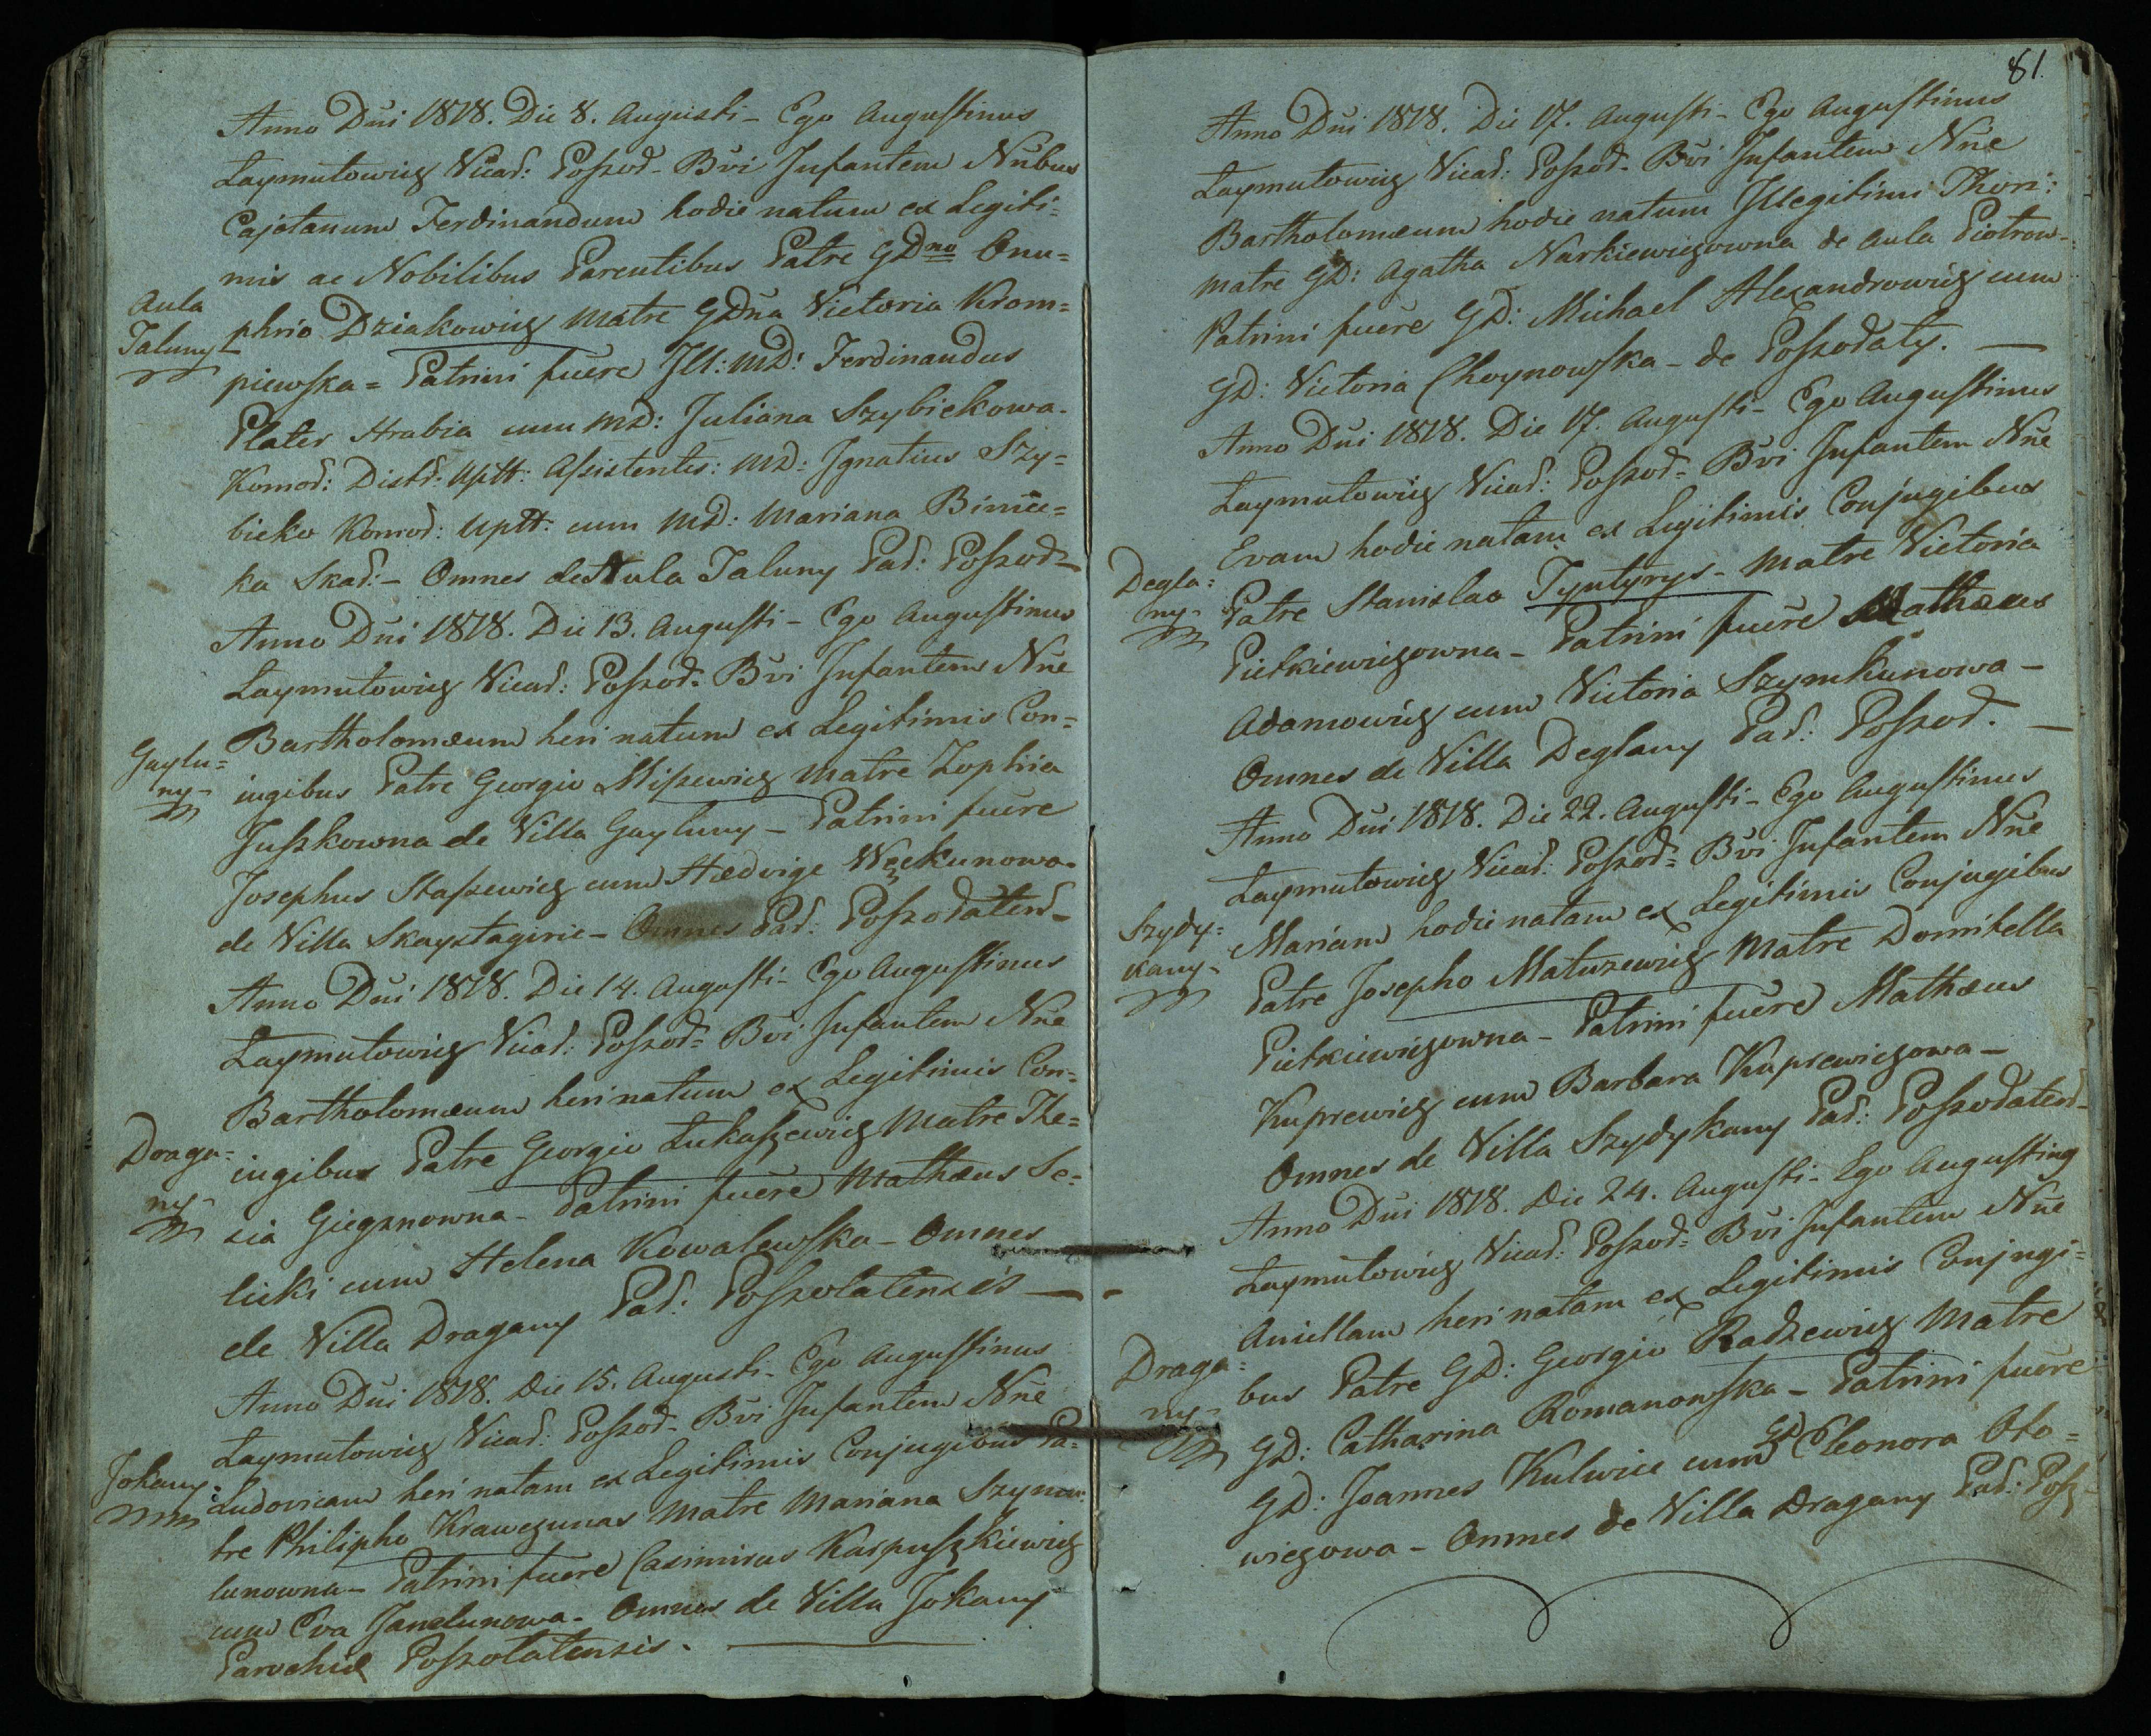 Anno Dni 1818. Die 8. Augusti - Ego Augustinus
Laymutowicz Vicar: Poszod- Bvi Infantem Nnbus
Cajetanum Ferdinandum hodie natum ex Legiti=
mis ac Nobilibus Parentibus Patre GDno Onu=
Aula
Taluny
phrio Dziakowicz Matre GDna Victoria Krom=
piewska = Patrini fuere Ill: MD: Ferdinandus
Plater Hrabia cum MD: Juliana Szybickowa-
Komor: Distr: Uptt: Assistentes: MD: Ignatius Szy=
bicko Komor: Uptt: cum MD: Mariana
ka Skar:- Omnes de Aula Taluny Par: Poszod-
Anno Dni 1818. Die 13. Augusti - Ego Augustinus
Laymutowicz Vicar: Poszod= Bvi Infantem Nne
Bartholomæum heri natum ex Legitimis Con=
Gaylu=
ny-
iugibus Patre Georgio Miszewicz Matre Zophia
Juszkowna de Villa Gayluny - Patrini fuere
Josephus Staszewicz cum Hedvige
de Villa Skaystagirie - Omnes Par: Poszodaten-
Anno Dni 1818. Die 14. Augusti - Ego Augustinus
Laymutowicz Vicar: Poszod= Bvi Infantem Nne
Bartholomæum heri natum ex Legitimis Con=
Draga=
ny-
iugibus Patre Georgio Łukaszewicz Matre The=
cia Giegznowna - Patrini fuere Mathæus Se=
licki cum Helena Kowalewska - Omnes
de Villa Dragany Par: Poszolatensis
Anno Dni 1818. Die 15. Augusti - Ego Augustinus
Laymutowicz Vicar: Poszod- Bvi Infantem Nne
Jokany
Ludovicam heri natam ex Legitimis Conjugibus Pa=
tre Philipho Krawczunas Matre Mariana Szymu=
lunowna - Patrini fuere Casimirus Karpuszkiewicz
cum Eva Janelunowa - Omnes de Villa Jokany
Parochiæ Poszolatensis.
81.
Anno Dni 1818. Die 17. Augusti - Ego Augustinus
Laymutowicz Vicar: Poszod- Bvi Infantem Nne
Bartholomæum hodie natum Illegitimi Thori:
Matre GD: Agatha Narkiewiczowna de Aula Piotrow-
Patrini fuere GD: Michael Alexandrowicz cum
GD: Victoria Choynowska - de Poszodaty.
Anno Dni 1818. Die 17. Augusti - Ego Augustinus
Laymutowicz Vicar: Poszod= Bvi Infantem Nne
Evam hodie natam ex Legitimis Conjugibus
Degla=
ny-
Patre Stanislao Tyntyrys - Matre Victoria
Pietkiewiczowna - Patrini fuere Mathæus
Adamowicz cum Victoria Szymkunowa -
Omnes de Villa Deglany Par: Poszod.
Anno Dni 1818. Die 22. Augusti - Ego Augustinus
Laymutowicz Vicar: Poszod= Bvi Infantem Nne
Szydy=
kany-
Mariam hodie natam ex Legitimis Conjugibus
Patre Josepho Matuzewicz Matre Domitella
Pietkiewiczowna - Patrini fuere Mathæus
Kuprewicz cum Barbara Kuprewiczowa -
Omnes de Villa Szydykany Par: Poszodaten-
Anno Dni 1818. Die 24. Augusti - Ego Augustinus
Laymutowicz Vicar: Poszod= Bvi Infantem Nne
Aniellam heri natam ex Legitimis Conjugi=
Draga=
ny-
bus Patre GD: Georgio Radzewicz Matre
GD: Catharina Romanowska - Patrini fuere
GD: Joannes Kulwiec cum GD Eleonora Oto=
wiczowa - Omnes de Villa Dragany Par: Posz-